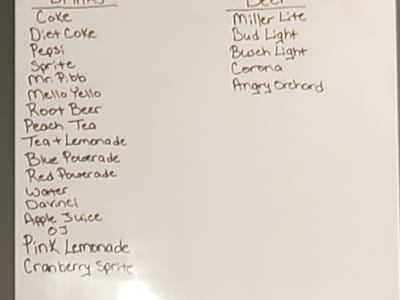 DRINKS
Coke
Diet Coke
Pepsi
Sprite
Mr. Pibb
Mello Yello
Root Beer
Peach Tea
Tea + Lemonade
Blue Powerade
Red Powerade
Water
Davinci
Apple Juice
OJ
Pink Lemonade
Cranberry Sprite
Beer
Miller Lite
Bud Light
Busch Light
Corona
Angry Orchard